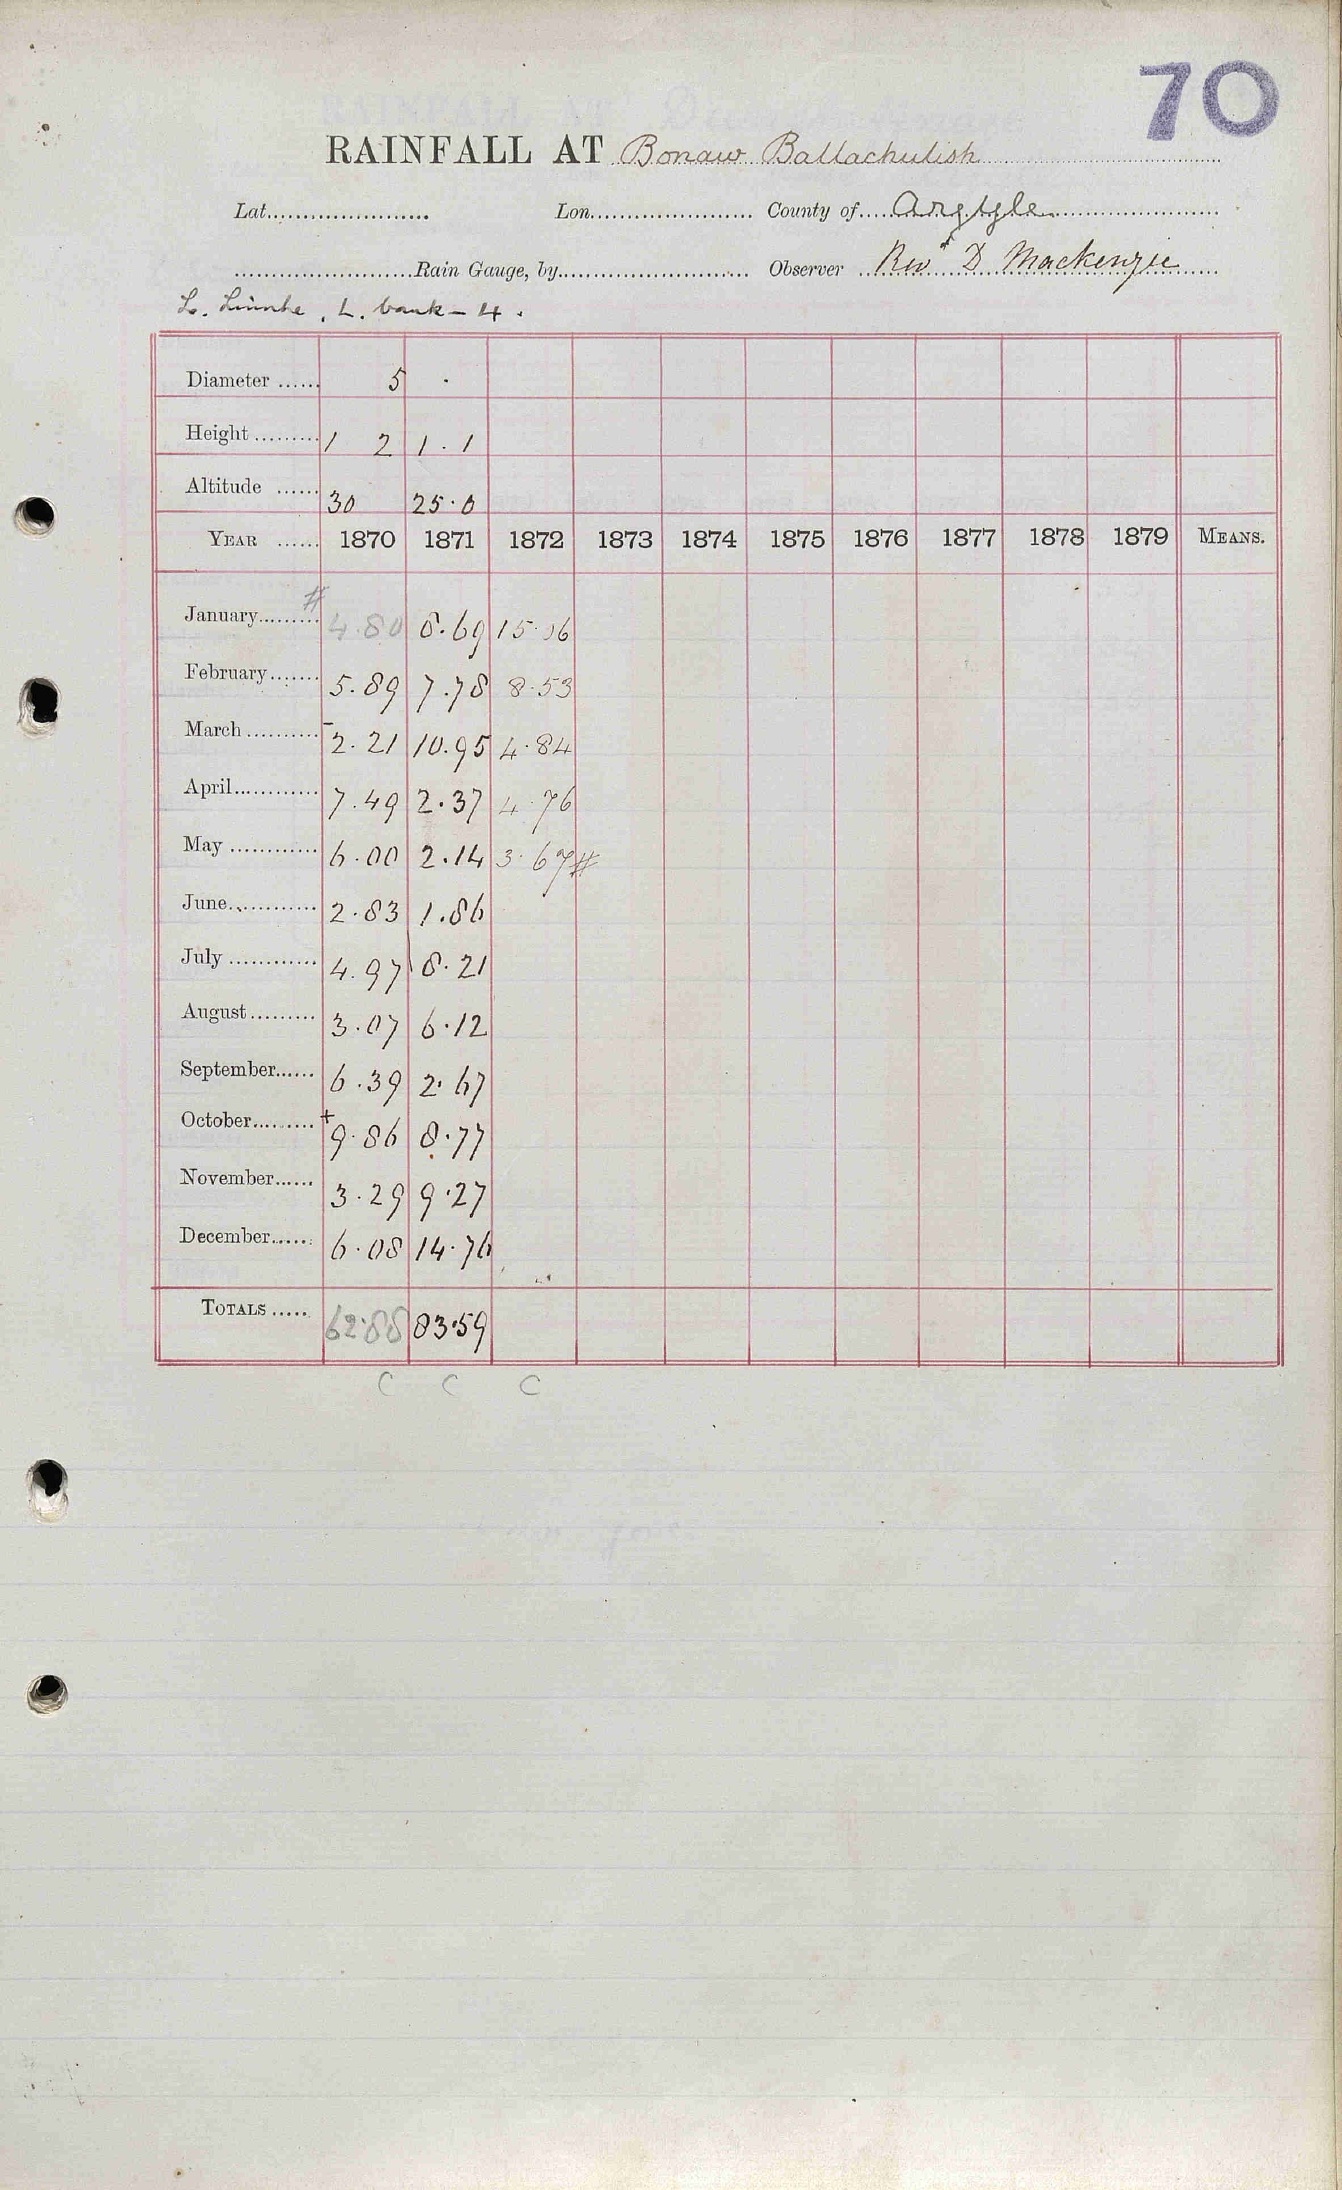 70
RAINFALL AT Bonaw Ballachulish
Lat. Lon. County of Argyle
Rain Gauge, by Observer Revd D Mackenzie
L. Linnhe, L. bank - 4.
Diameter 5 .
Height 1 2 1.1
Altitude 30 25.0
YEAR 1870 1871 1872 1873 1874 1875 1876 1877 1878 1879 MEANS.
January # 4.80 8.69 15.06
February 5.89 7.78 8.53
March - 2.21 10.95 4.84
April 7.49 2.37 4.76
May 6.00 2.14 3.67 #
June 2.83 1.86
July 4.97 8.21
August 3.07 6.12
September 6.39 2.67
October + 9.86 8.77
November 3.29 9.27
December 6.08 14.76
TOTALS 62.88 83.59
C C C